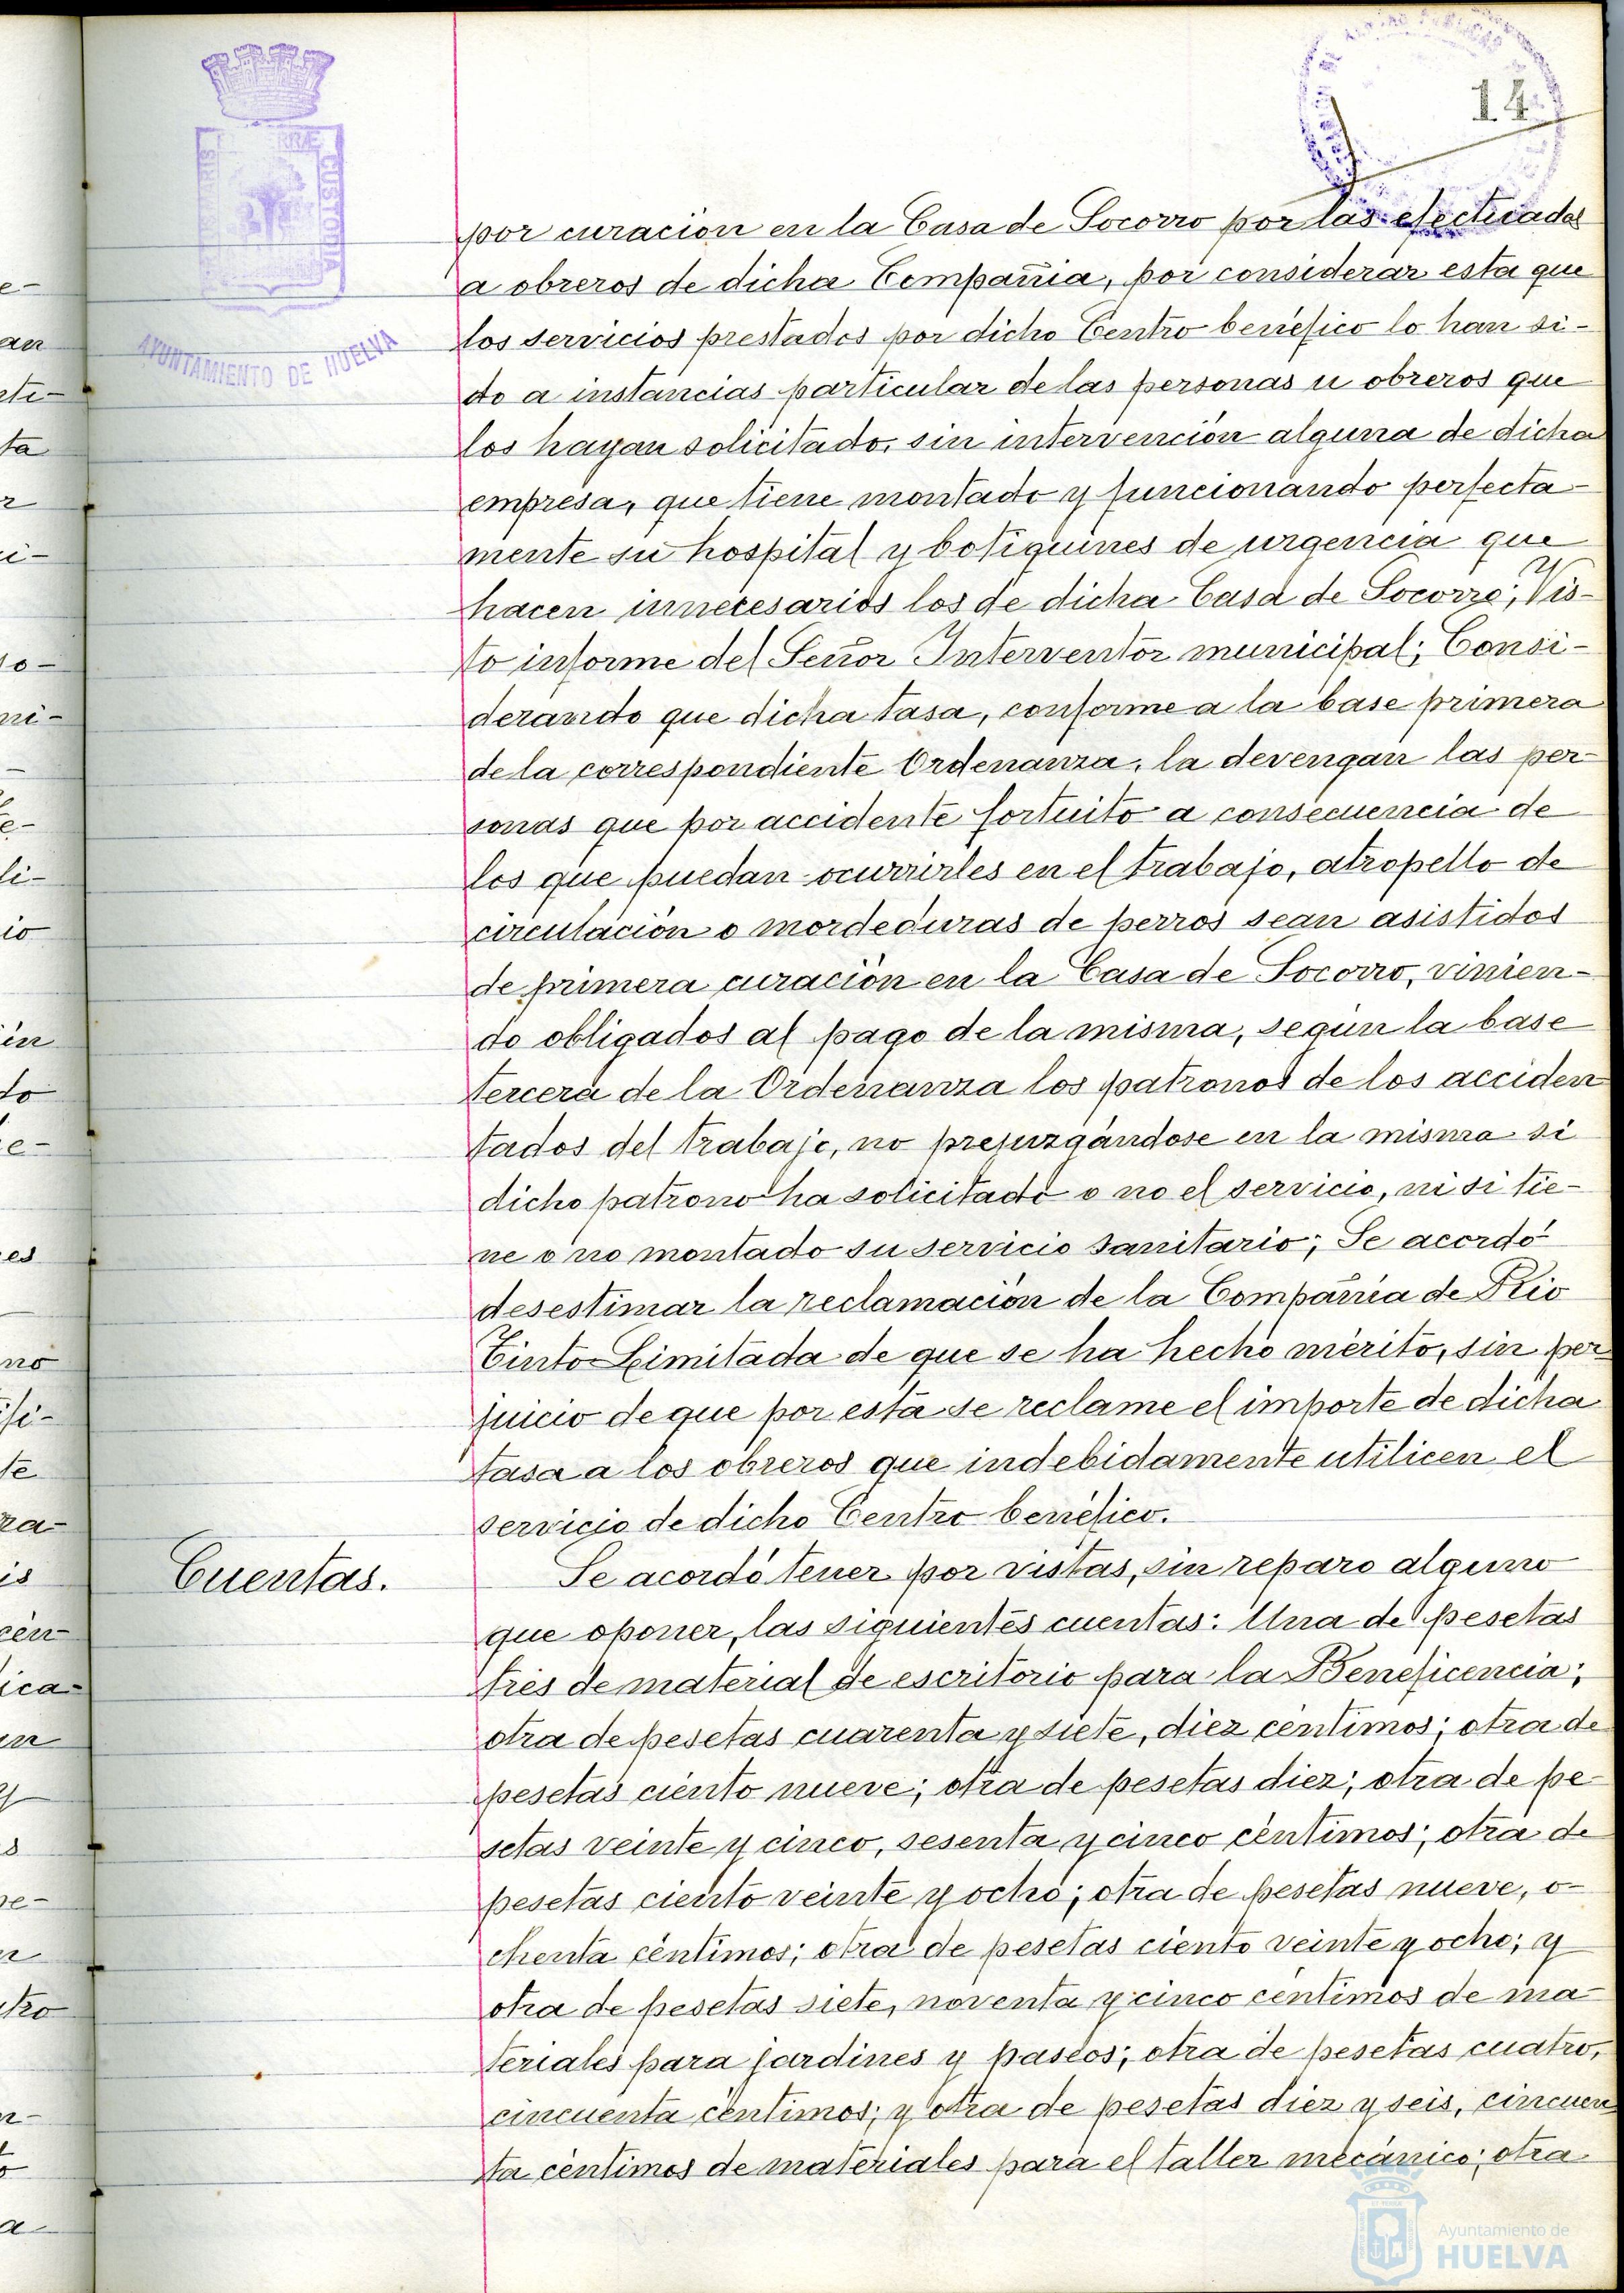 14
RRÆ
CUSTODIA
AYUNTAMIENTO DE HUELVA
por curación en la Casa de Socorro por las efectuadas
a obreros de dicha Compañia, por considerar esta que
los servicios prestados por dicho Centro benéfico lo han si-
do a instancias particular de las personas u obreros que
los hayan solicitado, sin intervención alguna de dicha
empresa, que tiene montado y funcionando perfecta-
mente su hospital y botiquines de urgencia que
hacen innecesarios los de dicha Casa de Socorro; Vis-
to informe del Señor Interventor municipal; Consi-
derando que dicha tasa, conforme a la base primera
de la correspondiente Ordenanza, la devengan las per-
sonas que por accidente fortuito a consecuencia de
los que puedan ocurrirles en el trabajo, atropello de
circulación o mordeduras de perros sean asistidos
de primera curación en la Casa de Socorro, vinien-
do obligados al pago de la misma, según la base
tercera de la Ordenanza los patronos de los acciden
tados del trabajo, no prejuzgándose en la misma si
dicho patrono ha solicitado o no el servicio, ni si tie-
ne o no montado su servicio sanitario; Se acordó
desestimar la reclamación de la Compañía de Rio
Tinto Limitada de que se ha hecho mérito, sin per
juicio de que por esta se reclame el importe de dicha
tasa a los obreros que indebidamente utilicen el
servicio de dicho Centro benéfico.
Cuentas.
Se acordó tener por vistas, sin reparo alguno
que oponer, las siguientes cuentas: Una de pesetas
tres de material de escritorio para la Beneficencia;
otra de pesetas cuarenta y siete, diez céntimos; otra de
pesetas ciento nueve; otra de pesetas diez; otra de pe-
setas veinte y cinco, sesenta y cinco céntimos; otra de
pesetas ciento veinte y ocho; otra de pesetas nueve, o-
chenta céntimos; otra de pesetas ciento veinte y ocho; y
otra de pesetas siete, noventa y cinco centimos de ma-
teriales para jardines y paseos; otra de pesetas cuatro,
cincuenta céntimos; y otra de pesetas diez y seis, cincuen
ta céntimos de materiales para el taller mecánico; otra
Ayuntamiento de
HUELVA